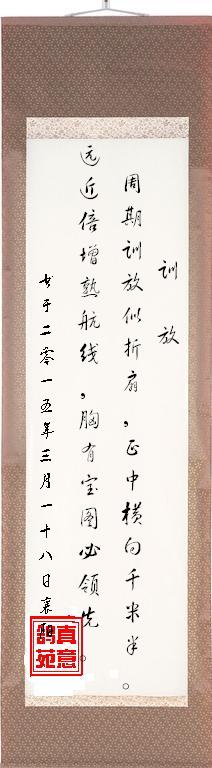 训放
周期训放似折扇，正中横向千米半。
远近倍增熟航线，胸有宝图必领先。
书于二零一五年三月一十八日襄阳
真意
鹞苑